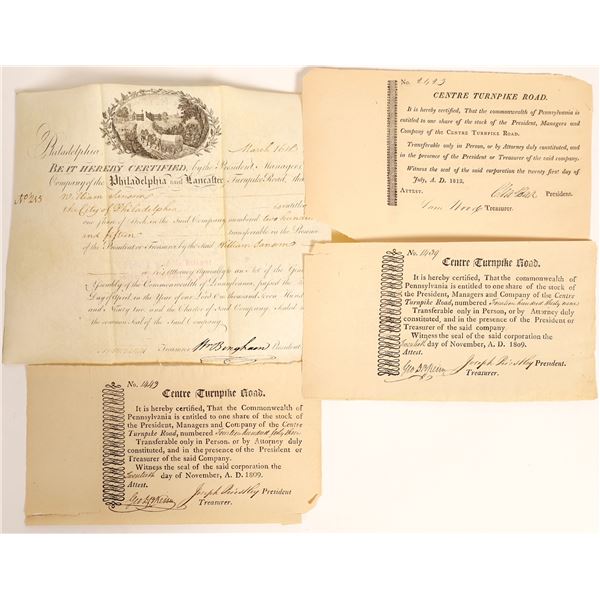 Philadelphia March 16th
BE IT HEREBY CERTIFIED, by the President Managers
Company of the Philadelphia and Lancaster Turnpike Road, that
No. 215 William Sansom
the City of Philadelphia is entitled
one share of Stock in the said Company numbered two hundred
and fifteen transferable in the Presence
of the President or Treasurer by the said William Sansom
or Attorney Agreeably to an Act of the General
Assembly of the Commonwealth of Pennsylvania, passed the
Day of April in the Year of our Lord One thousand seven Hund
and Ninety two and the Charter of said Company Sealed
the common Seal of the said Company
Treasurer Wm Bingham President
No. 2423
CENTRE TURNPIKE ROAD.
It is hereby certified, That the commonwealth of Pennsylvania is
entitled to one share of the stock of the President, Managers and
Company of the CENTRE TURNPIKE ROAD.
Transferable only in Person, or by Attorney duly constituted, and
in the presence of the President or Treasurer of the said Company.
Witness the seal of the said corporation the twenty first day of
July, A. D. 1812.
ATTEST. President.
Treasurer.
No. 1439
Centre Turnpike Road.
It is hereby certified, That the commonwealth of
Pennsylvania is entitled to one share of the stock of
the President, Managers and Company of the Centre
Turnpike Road, numbered fourteen hundred thirty nine
Transferable only in Person, or by Attorney duly
constituted, and in the presence of the President or
Treasurer of the said company.
Witness the seal of the said corporation the
twentieth day of November, A. D. 1809.
Attest. Joseph Priestley President.
Treasurer.
No. 1443
Centre Turnpike Road.
It is hereby certified, That the Commonwealth of
Pennsylvania is entitled to one share of the stock of
the President, Managers and Company of the Centre
Turnpike Road, numbered fourteen hundred forty three
Transferable only in Person. or by Attorney duly
constituted, and in the presence of the President or
Treasurer of the said Company.
Witness the seal of the said corporation the
twentieth day of November, A. D. 1809.
Attest. Joseph Priestley President
Treasurer.